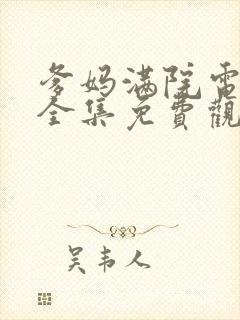 爹妈满院電
全集免費觀
吴韦人